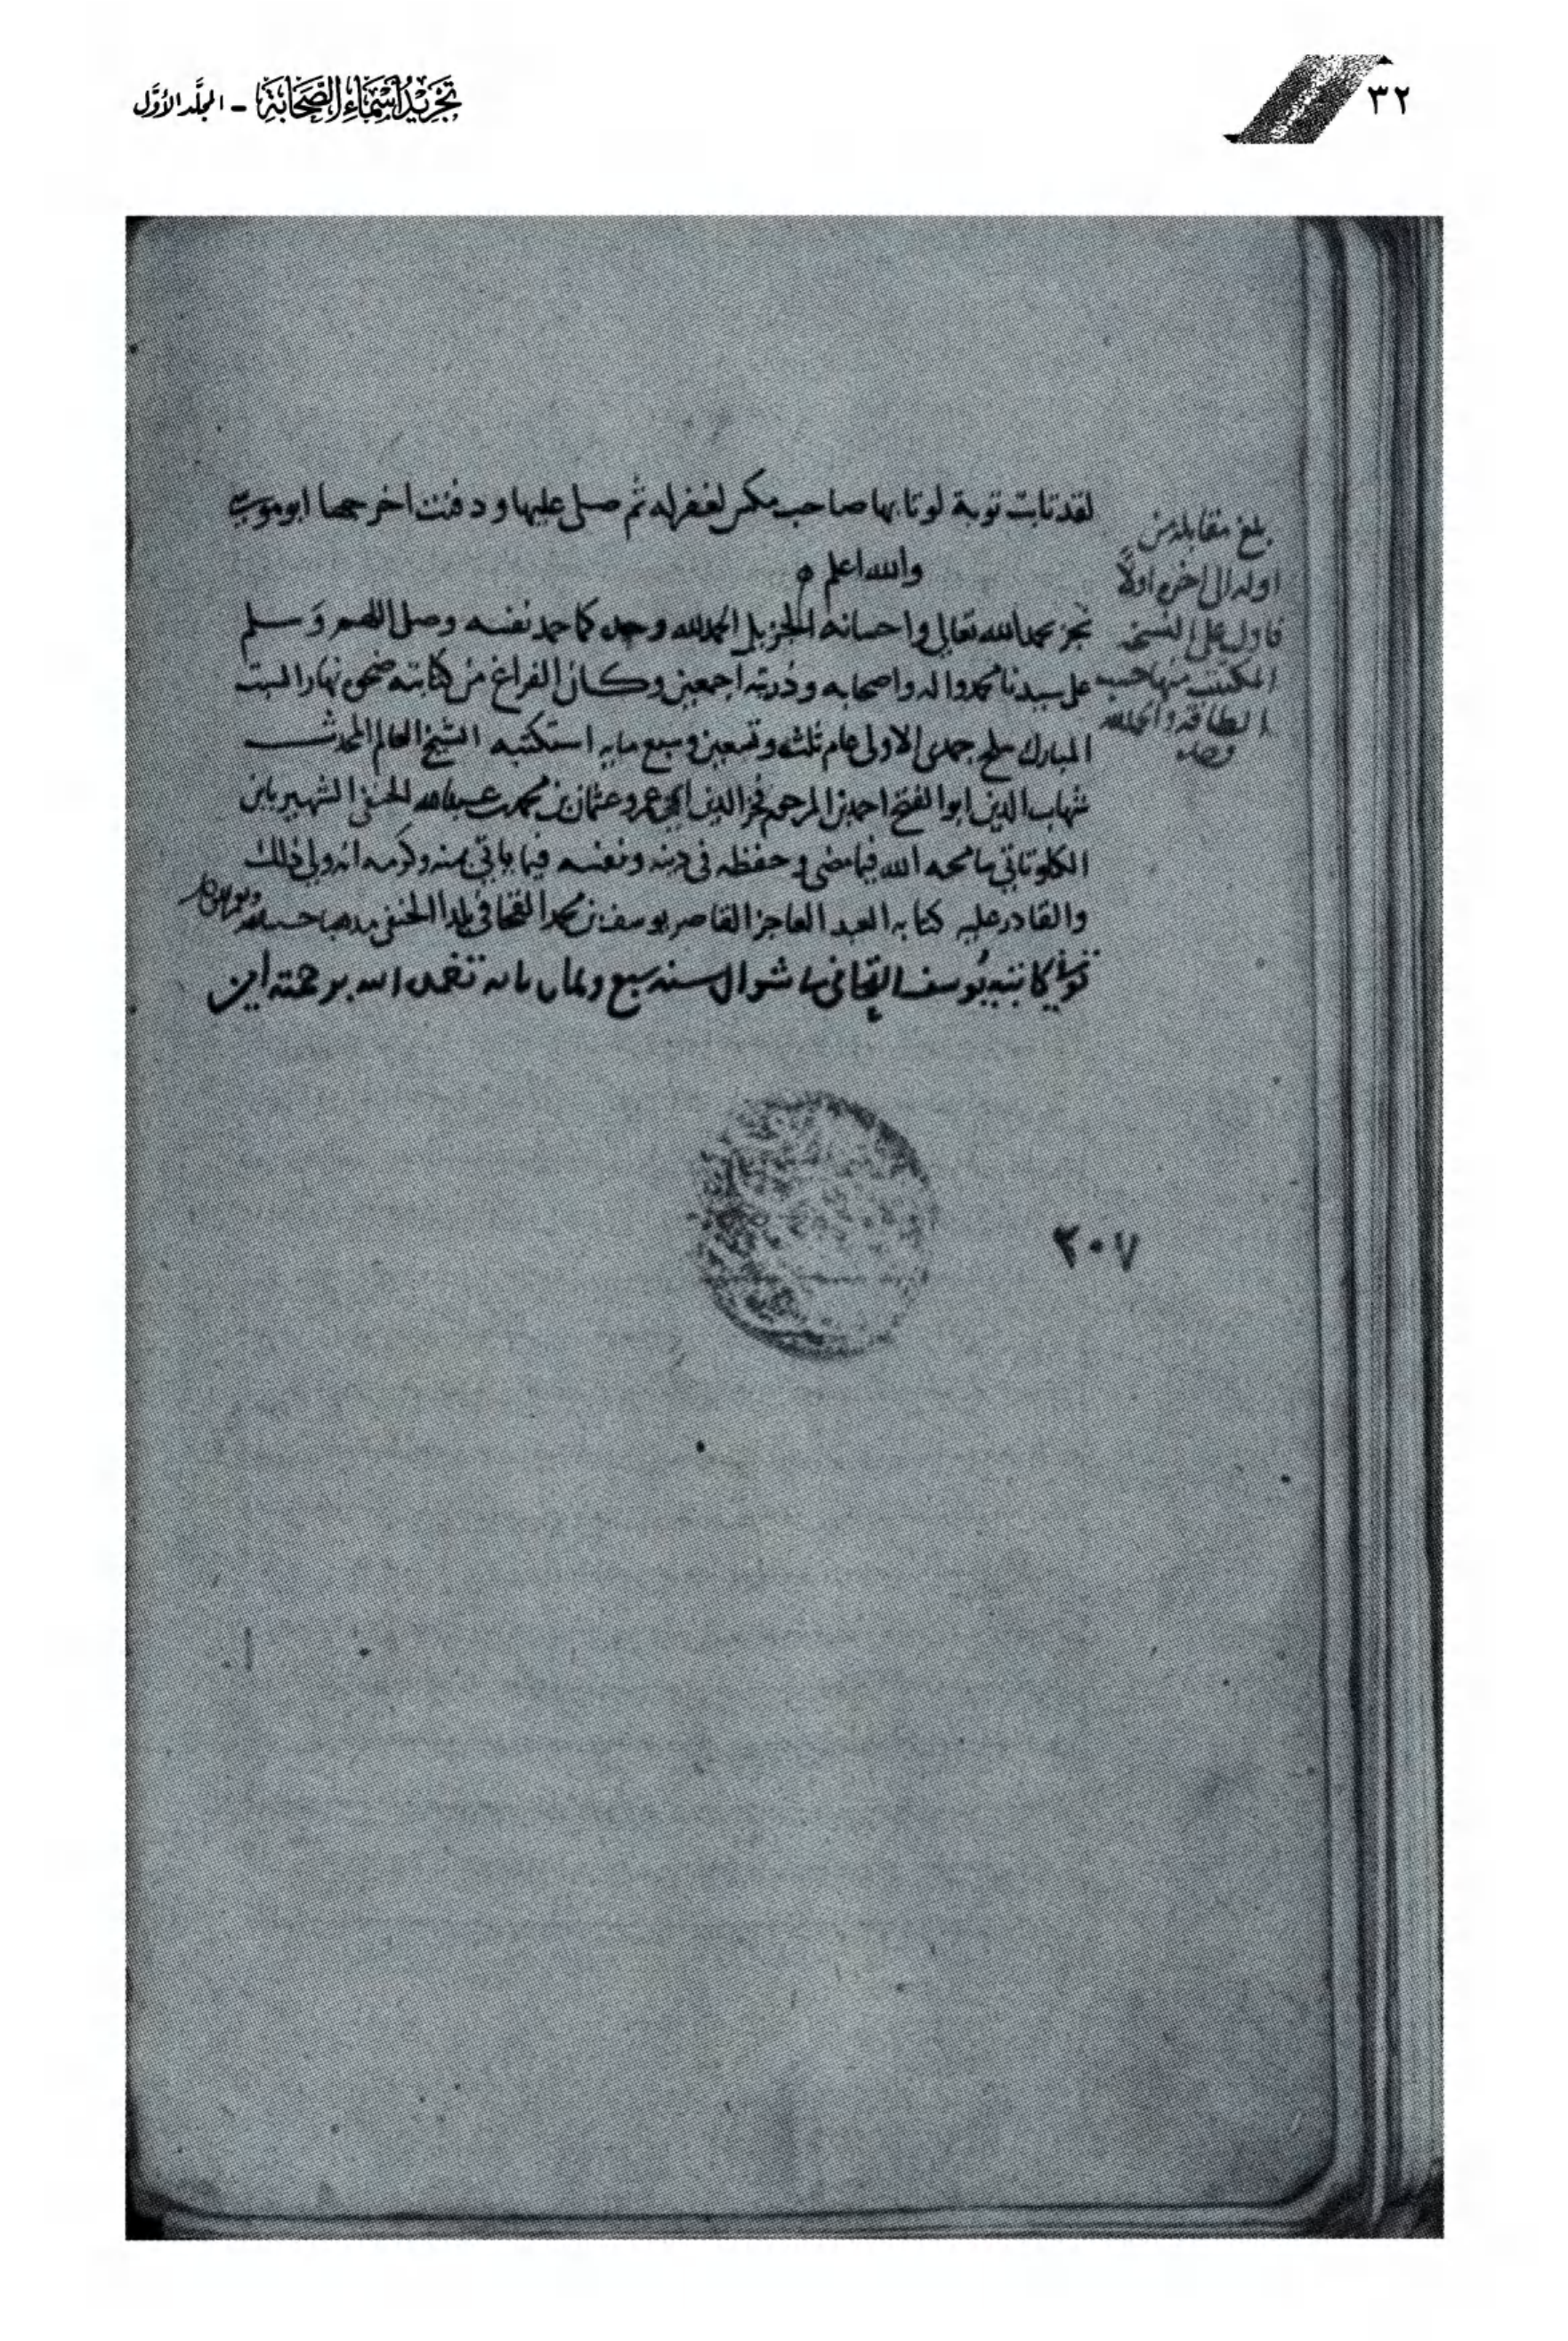 ٣٢
تجريد أسماء الصحابة - المجلد الأول
لقد تابت توبة لو تابها صاحب مكس لغفر له ثم صلى عليها ودفنت اخرجهما ابو موسى
والله اعلم ٥
نجز بحمد الله تعالى واحسانه الجزيل الحمد لله وحده كما حمد نفسه وصلى اللهم وسلم
على سيدنا محمد واله واصحابه وذريته اجمعين وكان الفراغ من كتابته ضحى نهار السبت
المبارك سلخ جمدى الاولى عام ثلثه وتسعين وسبع مايه استكتبه الشيخ العالم المحدث
شهاب الدين ابو الفتح احمد بن المرحوم فخر الدين ابي عمرو عثمان بن محمد بن عبدالله الحنفي الشهير بابن
الكلوتاتي سامحه الله فيما مضى وحفظه في دينه ونفسه فيما ياتي بمنه وكرمه انه ولي ذلك
والقادر عليه كتابه العبد العاجز القاصر يوسف بن محمد القحافي بلدا الحنفي مذهبا حسبه الله
توفي كاتبه يوسف القحافي شوال سنه سبع وثمان مايه تغمده الله برحمته امين
بلغ مقابلة من
اوله الى اخره اولا
فاول على النسخه
المكتتب منها حسب
الطاقه والحمد لله
وحده
٢٠٧